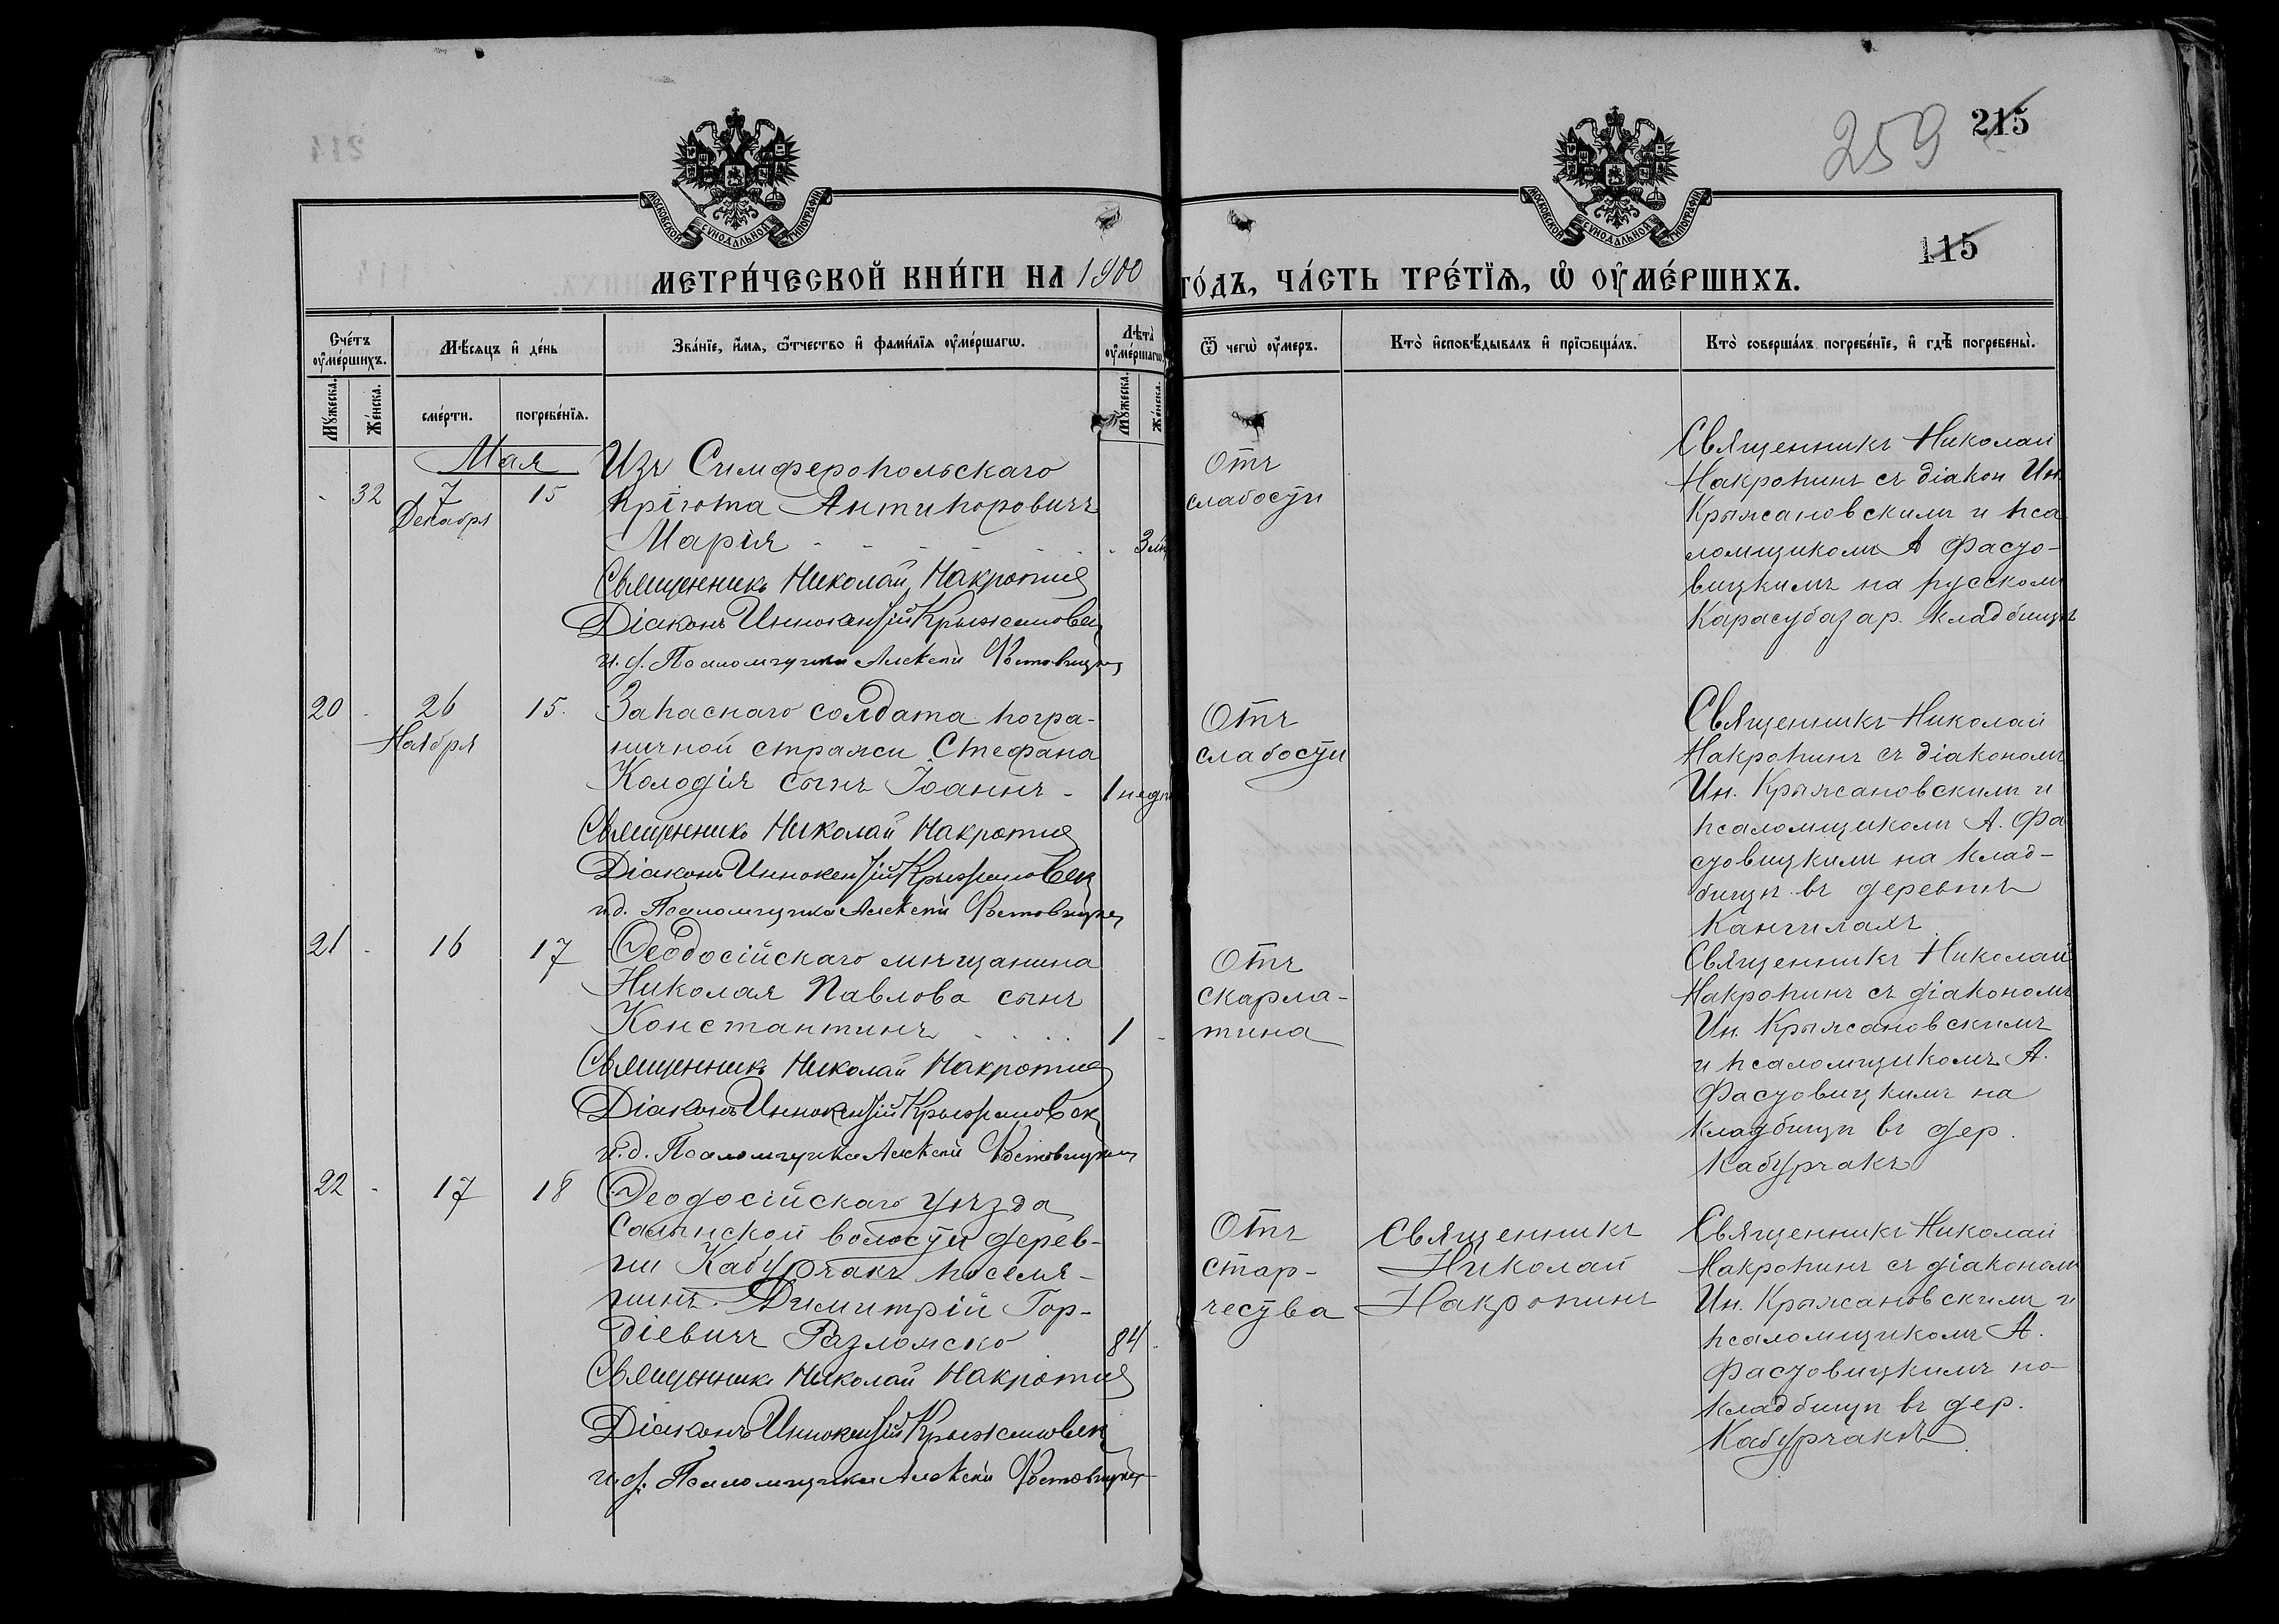 259
215
115
МОСКОВСКОЙ СѴНОДАЛЬНОЙ ТИПОГРАФІИ
МОСКОВСКОЙ СѴНОДАЛЬНОЙ ТИПОГРАФІИ
МЕТРИ́ЧЕСКОЙ КНИ́ГИ НА 1900
ГО́ДЪ, ЧА́СТЬ ТРЕ́ТІѦ, Ѽ ОУ҆МЕ́РШИХЪ.
Сче́тъ оу҆ме́ршихъ.
Мѣ́сяцъ и҆ де́нь
Зва́ніе, и҆́мя, ѻ҆́тчество и҆ фами́лія оу҆ме́ршагѡ.
Лѣта̀ оу҆ме́ршагѡ.
Ѿ чегѡ̀ оу҆́меръ.
Кто̀ и҆сповѣ́дывалъ и҆ прїѡбща́лъ.
Кто̀ соверша́лъ погребе́ніе, и҆ гдѣ̀ погребены̀.
Мꙋ́жеска.
Же́нска.
сме́рти.
погребе́нія.
Мꙋ́жеска.
Же́нска.
Мая
- 32
7 Декабря
15
Изъ Симферопольскаго
пріюта Антипоровичъ
Марія
Священникъ Николай Накропин
Діаконъ Иннокентій Крыжановск
и. д. Псаломщика Алексей Фастовицкий
Отъ
слабости
Священникъ Николай
Накропинъ съ діакон Ин.
Крыжановскимъ и пса
ломщикомъ А Фасто-
вицкимъ на русскомъ
Карасубазар. кладбищѣ
20 -
26 Ноября
15.
Запаснаго солдата погра-
ничной стражи Стефана
Колодія сынъ Іоаннъ -
Священникъ Николай Накропин
Діаконъ Иннокентій Крыжановск
и. д. Псаломщика Алексей Фастовицкий
Отъ
слабости
Священникъ Николай
Накропинъ съ діакономъ
Ин. Крыжановскимъ и
псаломщикомъ А. Фа
стовицкимъ на клад-
бищѣ въ деревнѣ
Кангилахъ
21 -
16
17
Ѳеодосійскаго мѣщанина
Николая Павлова сынъ
Константинъ
1 -
Священникъ Николай Накропин
Діаконъ Иннокентій Крыжановск
и. д. Псаломщика Алексей Фастовицкий
Отъ
скарла-
тина
Священникъ Николай
Накропинъ съ діакономъ
Ин. Крыжановскимъ
и псаломщикомъ А.
Фастовицкимъ на
кладбищѣ въ дер.
Кабурчакъ
22 -
17
18
Ѳеодосійскаго уѣзда
Салынской волости дерев-
ни Кабурчакъ поселя-
нинъ Димитрій Гор-
діевичъ Разломско
84
Священникъ Николай Накропин
Діаконъ Иннокентій Крыжановск
и. д. Псаломщика Алексей Фастовицкий
Отъ
стар-
чества
Священникъ
Николай
Накропинъ
Священникъ Николай
Накропинъ съ діакономъ
Ин. Крыжановскимъ и
псаломщикомъ А.
Фастовицкимъ на
кладбищѣ въ дер.
Кабурчакѣ